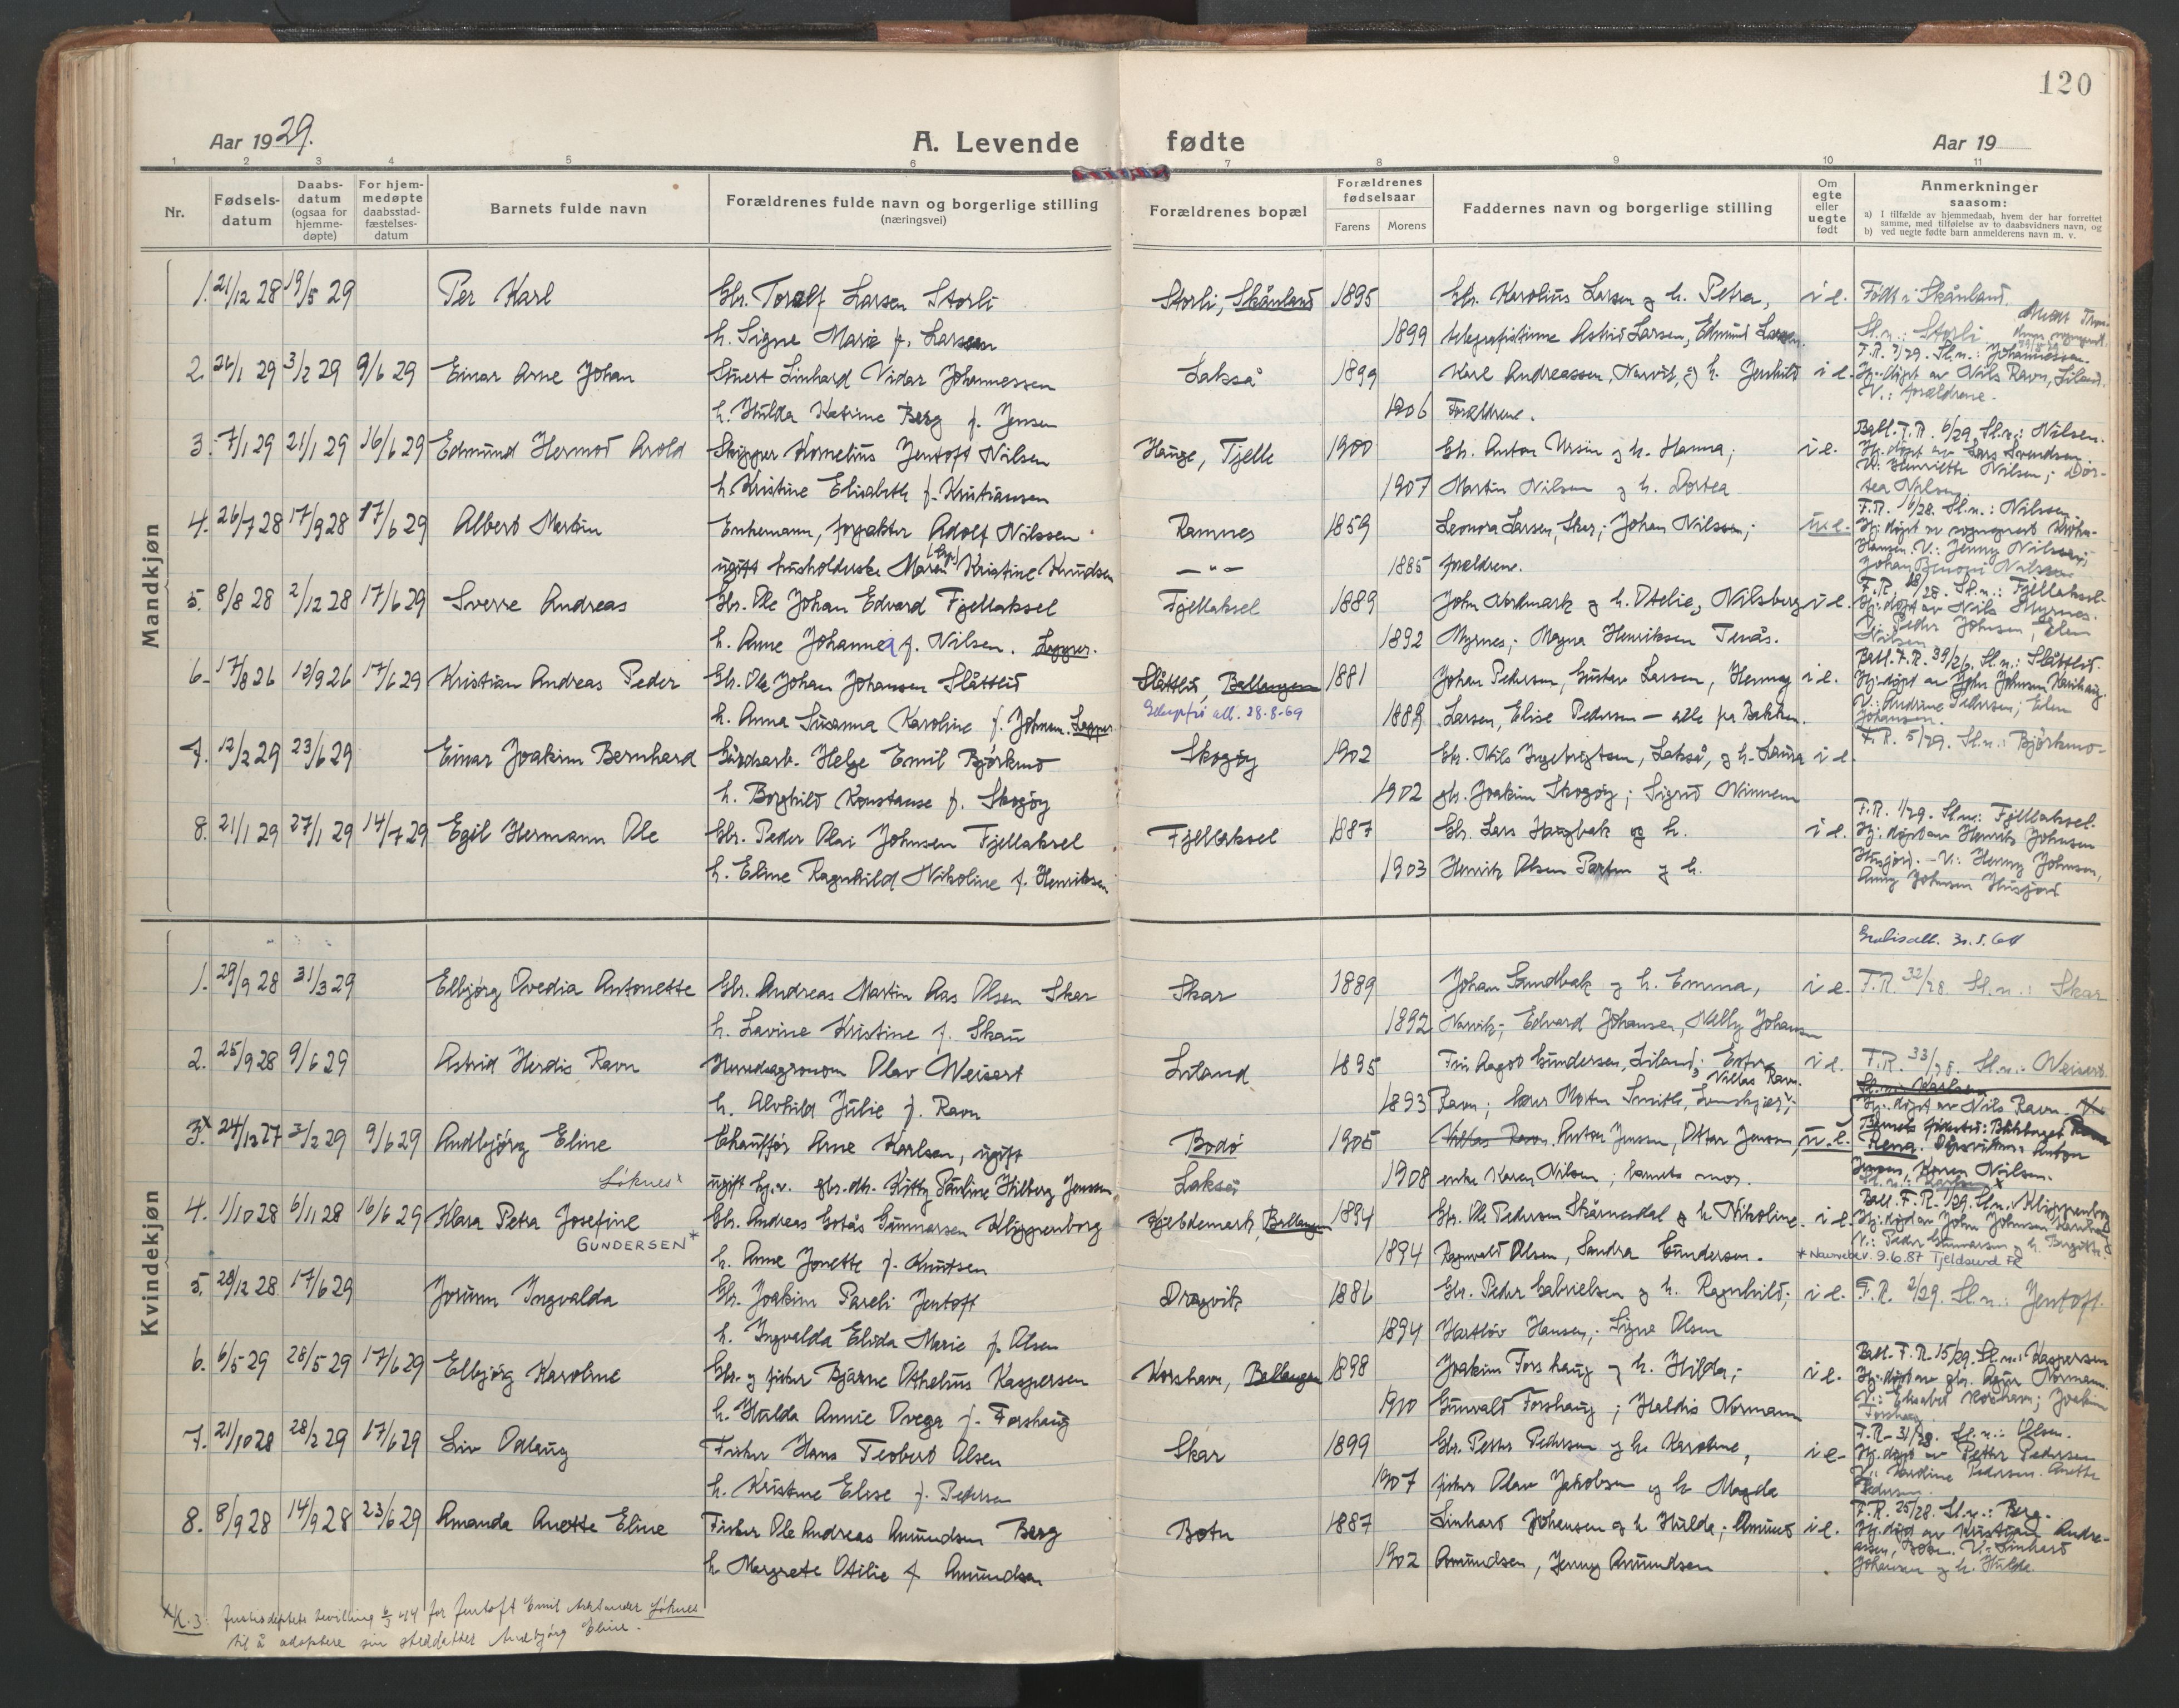 120
Aar 1929.
A. Levende fødte
Aar 19
1 2 3 4 5 6 7 8 9 10 11
Nr.
Fødsels-datum
Daabs-datum (ogsaa for hjemme-døpte)
For hjem-medøpte daabsstad-fæstelses-datum
Barnets fulde navn
Forældrenes fulde navn og borgerlige stilling (næringsvei)
Forældrenes bopæl
Forældrenes fødselsaar
Farens Morens
Faddernes navn og borgerlige stilling
Om egte eller uegte født
Anmerkninger saasom:
a) I tilfælde av hjemmedaab, hvem der har forrettet samme, med tilføielse av to daabsvidners navn, og
b) ved uegte fødte barn anmelderens navn m. v.
Mandkjøn
1. 21/12 28 19/5 29 Per Karl Gbr. Toralf Larsen Storli Storli, Skånland 1895 Gbr. Karolius Larsen og h. Petra, i e. Født i Skånland.
h. Signe Marie f. Larssen 1899 telegrafistinne Astrid Larsen, Edmund Larsen. Sl.n.: Storli
2. 26/1 29 3/2 29 9/6 29 Einar Arne Johan Linhard Vidar Johannessen Lakså 1899 Karl Andreassen, Narvik, og h. Jenhild i e. F.R. 2/29. Sl.n.: Johannessen. Hj.døpt av Nils Ravn, Liland.
h. Hulda Katrine Berg f. Jensen 1906 Forældrene. V.: forældrene.
3. 7/1 29 21/1 29 16/6 29 Edmund Hermod Arold Skipper Kornelius Jentoft Nilsen Hauge, Tjelle 1900 Gb. Anton Ursin og h. Hanna; i e. Ball. F.R. 6/29. Sl.n.: Nilsen. Hj.døpt av Lars Svendsen.
h. Kristine Elisabeth f. Kristiansen 1907 Martin Nilsen og h. Dortea V. Henriette Nilsen; Dortea Nilsen
4. 26/7 28 17/9 28 17/6 29 Albert Martin Enkemann, forpakter Adolf Nilssen Ramnes 1859 Leonora Larsen, Skar; Johan Nilssen; u.e. F.R. 16/28. Sl.n.: Nilssen.
ugift husholderske Maren Kristine Knudsen — " — 1885 forældrene. V.: Jenny Nilssen; Johan Benoni Nilssen
5. 8/8 28 2/12 28 17/6 29 Sverre Andreas Gbr. Ole Johan Edvard Fjellaksel Fjellaksel 1889 John Nordmark og h. Otelie, Nilsberg i e. F.R. 18/28. Sl.n.: Fjellaksel. Hj.døpt av Nils Myrnes.
h. Anne Johanne f. Nilsen. Lapper. 1892 Myrnes; Magna Henriksen Tenås. V.: Peder Johnsen, Elen Nilsen
6. 17/8 26 12/9 26 17/6 29 Kristian Andreas Peder Gbr. Ole Johan Johansen Slåttlid Slåttlid, Ballangen 1881 Johan Pedersen, Gustav Larsen, Henny i e. Ball. F.R. 39/26. Sl.n.: Slåttlid. Hj.døpt av John Johnsen
h. Anna Susanna Karoline f. Johnsen. Lapper 28-8-69 1889 Larsen, Elise Pedersen — alle fra Bakken. V.: Andrine Pedersen; Elen Johansen.
7. 12/2 29 23/6 29 Einar Joakim Bernhard Gårdsarb. Helge Emil Björkmo Skogøy 1902 Gbr. Nils Ingebrigtsen, Lakså, og h. Laura i e. F.R. 5/29. Sl.n.: Björkmo.
h. Borghild Konstanse f. Skogøy 1902 gbr. Joakim Skogøy; Sigrid Winnem
8. 21/1 29 27/1 29 14/7 29 Egil Hermann Ole Gbr. Peder Olai Johnsen Fjellaksel Fjellaksel 1887 Gbr. Lars Haugbak og h. i e. F.R. 1/29. Sl.n.: Fjellaksel. Hj.døpt av Henrik Johnsen
h. Eline Ragnhild Nikoline f. Henriksen 1903 Henrik Olsen og h. V.: Henny Johnsen, Anny Johnsen Husjord
Kvindekjøn
Gratisatt.
1. 29/9 28 31/3 29 Elbjørg Ovedia Antonette Gbr. Andreas Martin Aas Olsen Skar Skar 1889 Johan Sandbak og h. Emma, i e. F.R. 32/28. Sl.n.: Skar
h. Lavine Kristine f. Skau 1892 Narvik; Edvard Johansen, Nelly Johansen
2. 25/9 28 9/6 29 Astrid Herdis Ravn Herredsagronom Olav Weisert Liland 1895 Frk. Aagot Gundersen, Liland; i e. F.R. 33/28. Sl.n.: Weisert.
h. Alvhild Julie f. Ravn 1893 Ravn; Morten Smith, Niklas Ravn.
3.* 24/12 27 3/2 29 9/6 29 Andbjørg Eline Chauffør Arne Karlsen, ugift Bodø 1905 Anton Jensen, Ottar Jensen, u.e. Hj.døpt av Nils Ravn.
Løknes* ugift gbr.dtr. Kitty Pauline Hilberg Jensen Lakså 1908 enke Karen Nilsen; barnets mor. Anton Jensen, Karen Nilsen.
4. 1/10 28 6/11 28 16/6 29 Klara Petra Josefine Gbr. Andreas Gotås Gunnarsen Klippenborg Kjeldemark, Ballangen 1894 Gbr. Ole Pedersen Skårnesdal og h. Nikoline. i e. Ball. F.R. 1/29. Sl.n.: Klippenborg Hj.døpt av John Johnsen
GUNDERSEN* h. Anne Jonette f. Knutsen 1894 Ragnvald Olsen, Sandra Gundersen. V.: Peder Gunnarsen og h. Birgitte. * Navnebev. 9.6.87 Tjeldsund FR
5. 28/12 28 17/6 29 Jorunn Ingvalda Gbr. Joakim Pareli Jentoft Dragvik 1881 Gbr. Peder Gabrielsen og h. Ragnhild; i e. F.R. 2/29. Sl.n.: Jentoft.
h. Ingvalda Elida Marie f. Olsen 1894 Hartløv Hansen; Signe Olsen
6. 6/5 29 28/5 29 17/6 29 Elbjørg Karoline Gbr. og fisker Bjarne Othelius Kaspersen Korshavn, Ballangen 1898 Joakim Forshaug og h. Hilda; i e. Ball. F.R. 15/29. Sl.n.: Kaspersen
h. Hulda Annie Ovega f. Forshaug 1910 Gunvald Forshaug; Haldis Normann V.: Elisabet Korshavn; Joakim Forshaug
7. 21/10 28 28/2 29 17/6 29 Liv Odlaug Fisker Hans Teobert Olsen Skar 1899 Gbr. Petter Pedersen og h. Karoline, i e. F.R. 31/28. Sl.n.: Olsen. Hj.døpt av Petter Pedersen
h. Kristine Elise f. Pedersen 1907 fisker Olav Jakobsen og h. Magda V.: Karoline Pedersen. Anette Pedersen.
8. 8/9 28 14/9 28 23/6 29 Amanda Anette Eline Fisker Ole Andreas Amundsen Berg Botn 1887 Linhard Johansen og h. Hulda; Amund i e. F.R. 25/28. Sl.n.: Berg. Hj.døpt av Kristian Andreassen, Botn.
h. Margrete Otilie f. Amundsen 1902 Amundsen, Jenny Amundsen V.: Linhard Johansen og h. Hulda.
*K. 3: Justisdeptets bevilling for Jentoft Emil Løknes
til å adoptere sin steddatter Andbjørg Eline.